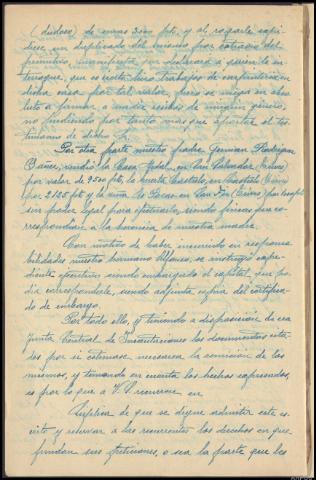 (dudoso) de unas 3000 pts, y al rogarle expi-
diese un duplicado del mismo por extravio del
primitivo, manifiesta por declarará a quien le in-
terrogue, que es cierto hizo trabajos de carpinteria en
dicha casa por tal valor, pero se niega en abso-
luto a firmar a nadie recibos de ningún género,
no pudiendo por tanto mas que aportar el tes-
timonio de dicho Sr.
Por otra parte nuestro padre German Rodriguez
Yañez, vendió la Casa en San Salvador
por valor de 9500 pts, la huerta en
por 2125 pts y la viña de en
sin poder legal para efectuarlo, siendo fincas que co-
rrespondian a la herencia de nuestra madre.
Con motivo de haber incurrido en responsa-
bilidades nuestro hermano Alfonso, se instruyó expe-
diente siendo embargado el capital que po-
dia corresponderle, siendo adjunta copia del certifica-
do de embargo.
Por todo ello, y teniendo a disposición de esa
Junta Central de Incautaciones los documentos cita-
dos por si estimase necesaria la remisión de los
mismos, y tomando en cuenta los hechos expresados,
es por lo que a V. I. recurren en
Suplica de que se digne admitir este es-
crito y reservar a las recurrentes los derechos en que
fundan sus peticiones, o sea la parte que les